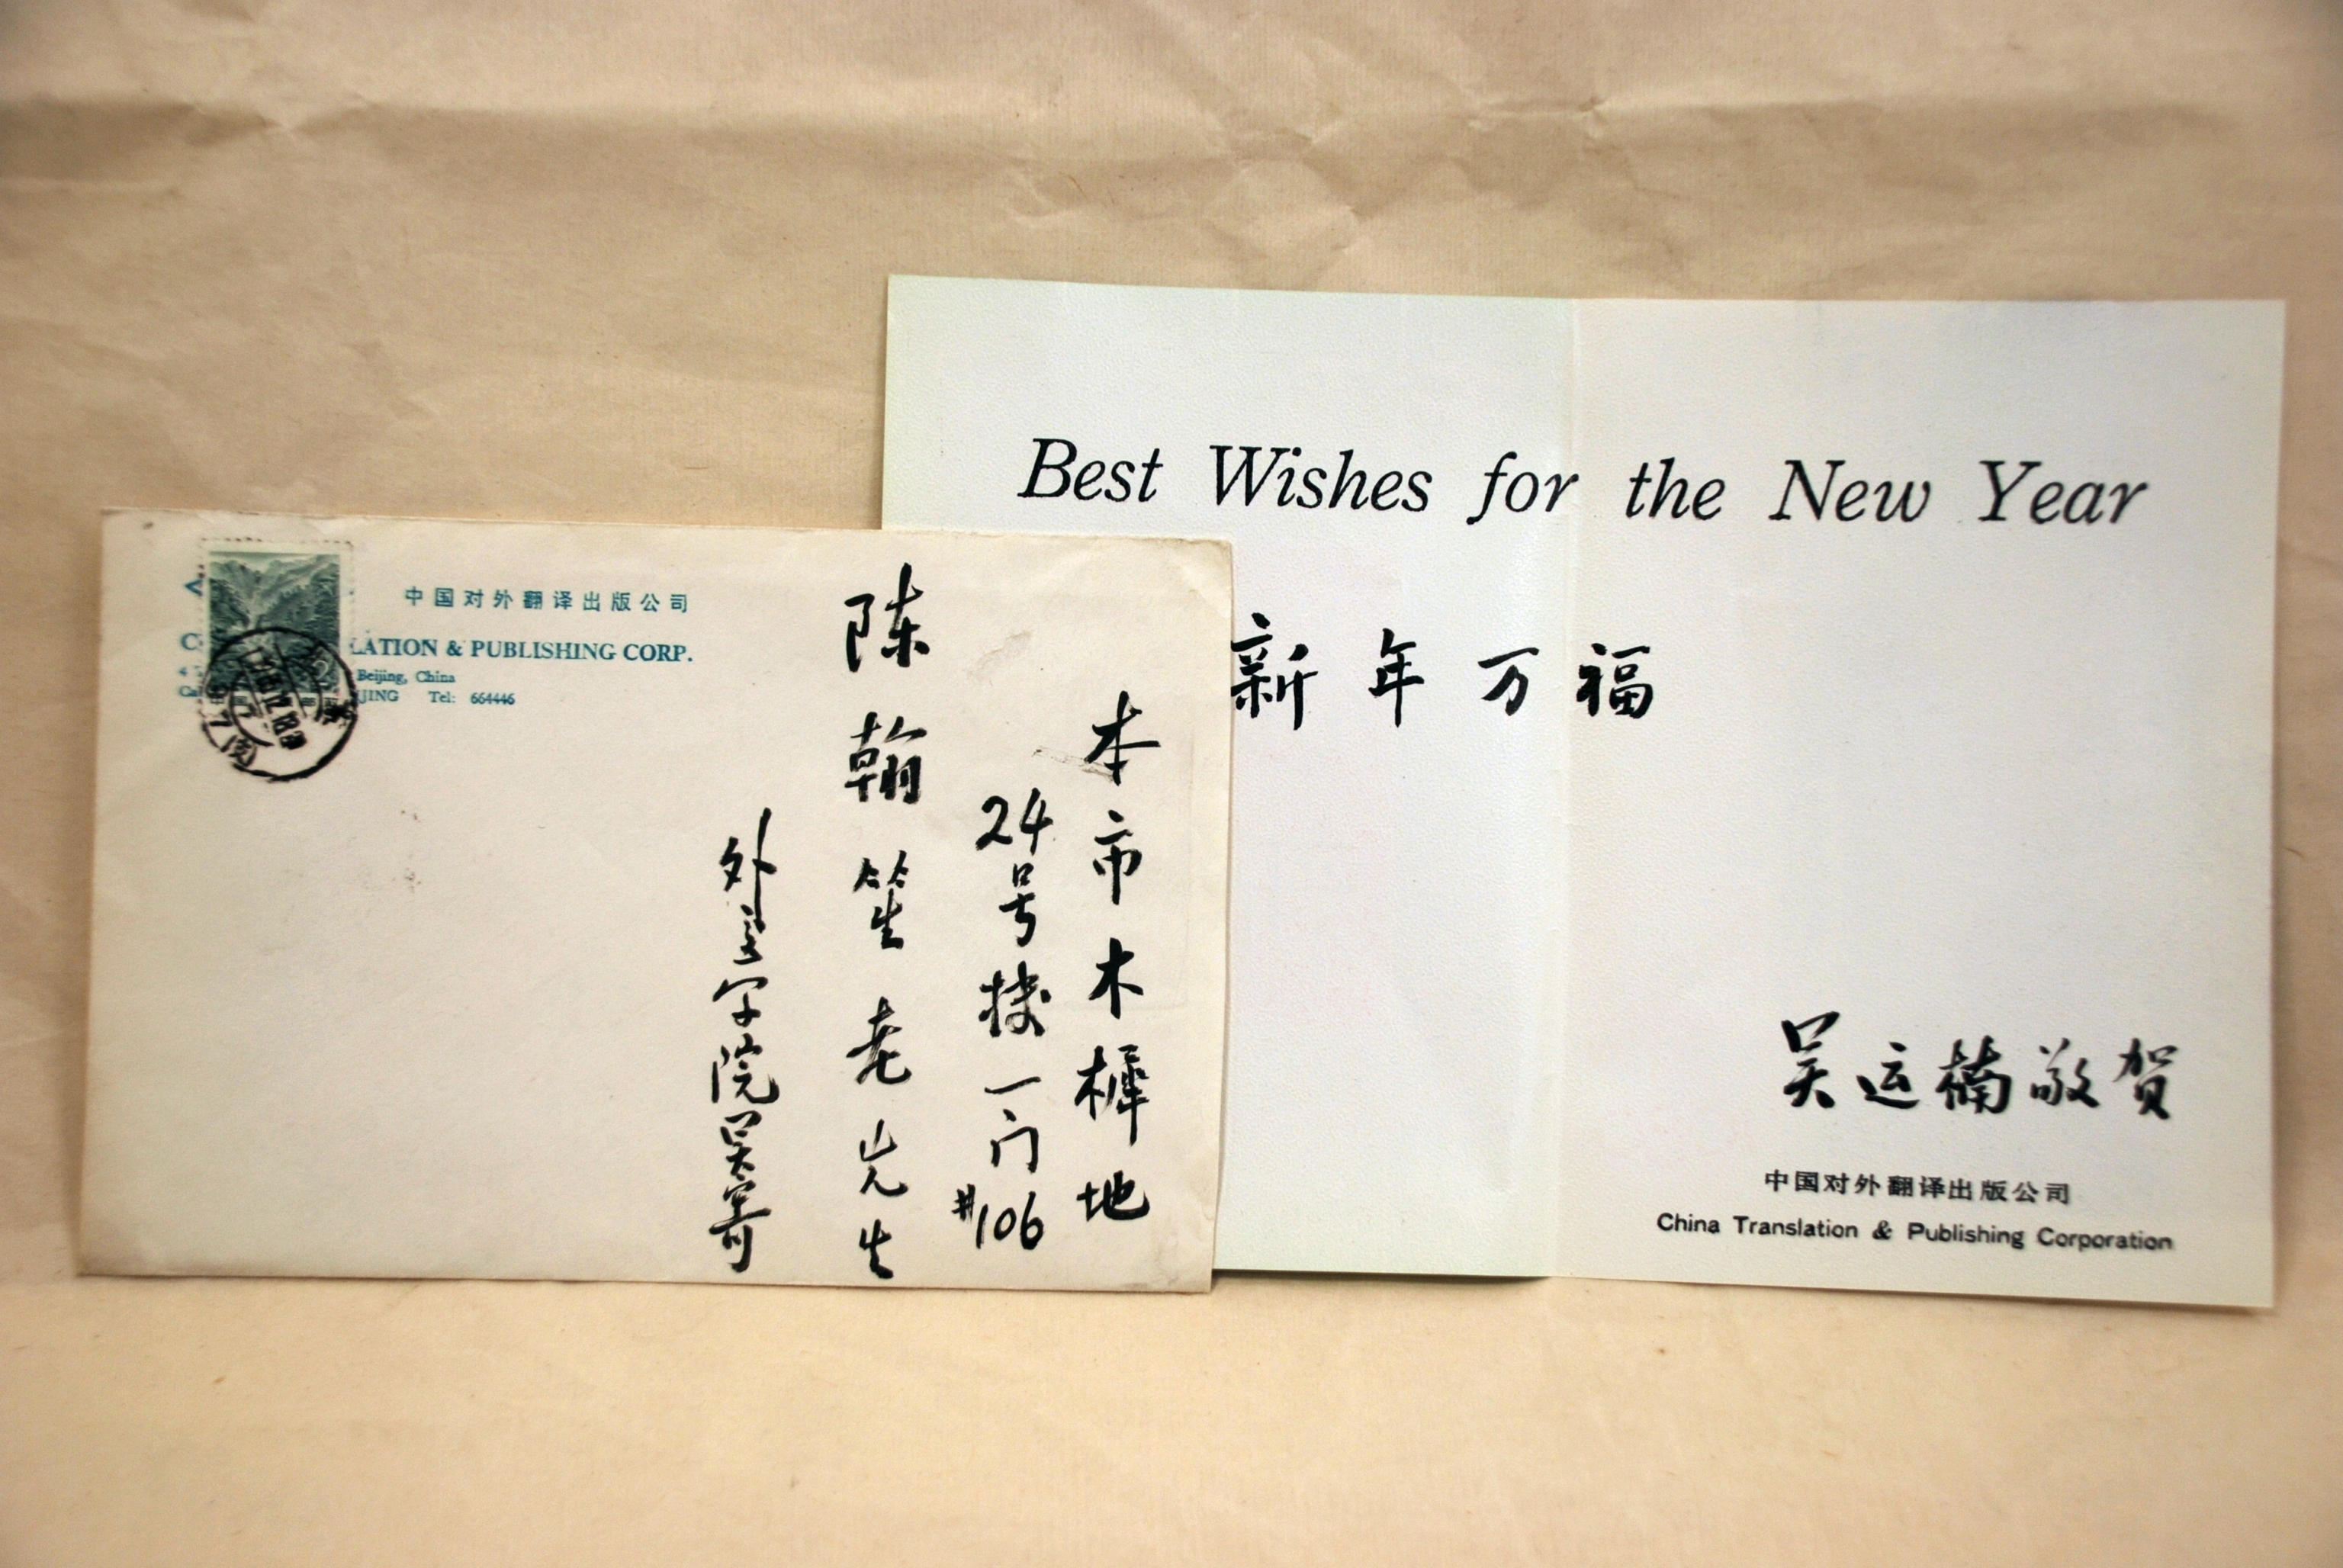 中国对外翻译出版公司
LATION & PUBLISHING CORP.
Beijing, China
JING Tel: 664446
本市木樨地
24号楼一门
#106
陈翰笙老先生
外交学院吴寄
Best Wishes for the New Year
新年万福
吴运楠敬贺
中国对外翻译出版公司
China Translation & Publishing Corporation